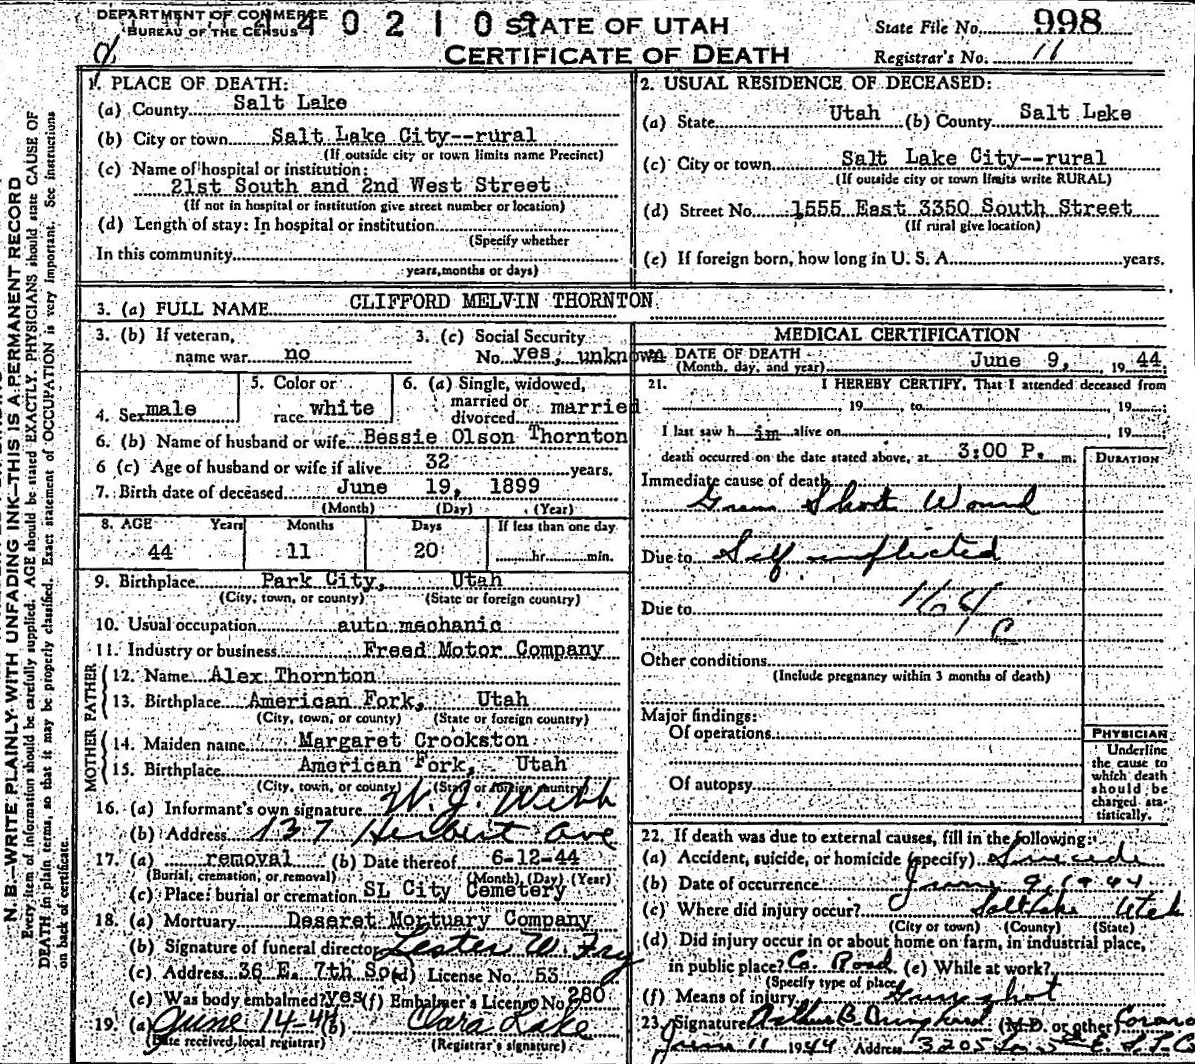 DEPARTMENT OF COMMERCE
BUREAU OF THE CENSUS
4 0 2 1 0
STATE OF UTAH
CERTIFICATE OF DEATH
State File No. 998
Registrar's No. 11
N.B.—WRITE PLAINLY WITH UNFADING INK—THIS IS A PERMANENT RECORD
Every item of information should be carefully supplied. AGE should be stated EXACTLY. PHYSICIANS should state CAUSE OF
DEATH in plain terms, so that it may be properly classified. Exact statement of OCCUPATION is very important. See instructions
on back of certificate.
1. PLACE OF DEATH:
(a) County Salt Lake
(b) City or town Salt Lake City--rural
(If outside city or town limits name Precinct)
(c) Name of hospital or institution:
21st South and 2nd West Street
(If not in hospital or institution give street number or location)
(d) Length of stay: In hospital or institution
(Specify whether
In this community
years, months or days)
2. USUAL RESIDENCE OF DECEASED:
(a) State Utah (b) County Salt Lake
(c) City or town Salt Lake City--rural
(If outside city or town limits write RURAL)
(d) Street No. 1555 East 3350 South Street
(If rural give location)
(e) If foreign born, how long in U. S. A. years.
3. (a) FULL NAME CLIFFORD MELVIN THORNTON
3. (b) If veteran,
name war no
3. (c) Social Security
No. yes, unknown
4. Sex male
5. Color or
race white
6. (a) Single, widowed,
married or
divorced married
6. (b) Name of husband or wife Bessie Olson Thornton
6 (c) Age of husband or wife if alive 32 years.
7. Birth date of deceased June 19, 1899
(Month) (Day) (Year)
8. AGE Years Months Days If less than one day
44 11 20 hr. min.
9. Birthplace Park City, Utah
(City, town, or county) (State or foreign country)
10. Usual occupation auto mechanic
11. Industry or business Freed Motor Company
FATHER
12. Name Alex Thornton
13. Birthplace American Fork, Utah
(City, town, or county) (State or foreign country)
MOTHER
14. Maiden name Margaret Crookston
15. Birthplace American Fork, Utah
(City, town, or county) (State or foreign country)
16. (a) Informant's own signature W. J. Webb
(b) Address 137 Herbert Ave
17. (a) removal (b) Date thereof 6-12-44
(Burial, cremation, or removal) (Month) (Day) (Year)
(c) Place: burial or cremation SL City Cemetery
18. (a) Mortuary Deseret Mortuary Company
(b) Signature of funeral director Lester W. Fry
(c) Address 36 E. 7th So. (d) License No. 53
(e) Was body embalmed? yes (f) Embalmer's License No. 280
19. (a) June 14-44 (b) Clara Lake
(Date received, local registrar) (Registrar's signature)
MEDICAL CERTIFICATION
DATE OF DEATH
(Month, day, and year) June 9, 19 44
21. I HEREBY CERTIFY, That I attended deceased from
, 19 , to , 19
I last saw h im alive on , 19
death occurred on the date stated above, at 3:00 P. m.
DURATION
Immediate cause of death
Gun Shot Wound
Due to Self inflicted
164
Due to
C
Other conditions
(Include pregnancy within 3 months of death)
Major findings:
Of operations
Of autopsy
PHYSICIAN
Underline
the cause to
which death
should be
charged sta-
tistically.
22. If death was due to external causes, fill in the following:
(a) Accident, suicide, or homicide (specify) Suicide
(b) Date of occurrence June 9, 1944
(c) Where did injury occur? Salt Lake Utah
(City or town) (County) (State)
(d) Did injury occur in or about home on farm, in industrial place,
in public place? Co. Road (e) While at work?
(Specify type of place)
(f) Means of injury Gunshot
23. Signature (M.D. or other) Coroner
June 11 1944 Address 3205 E. S.L.C.